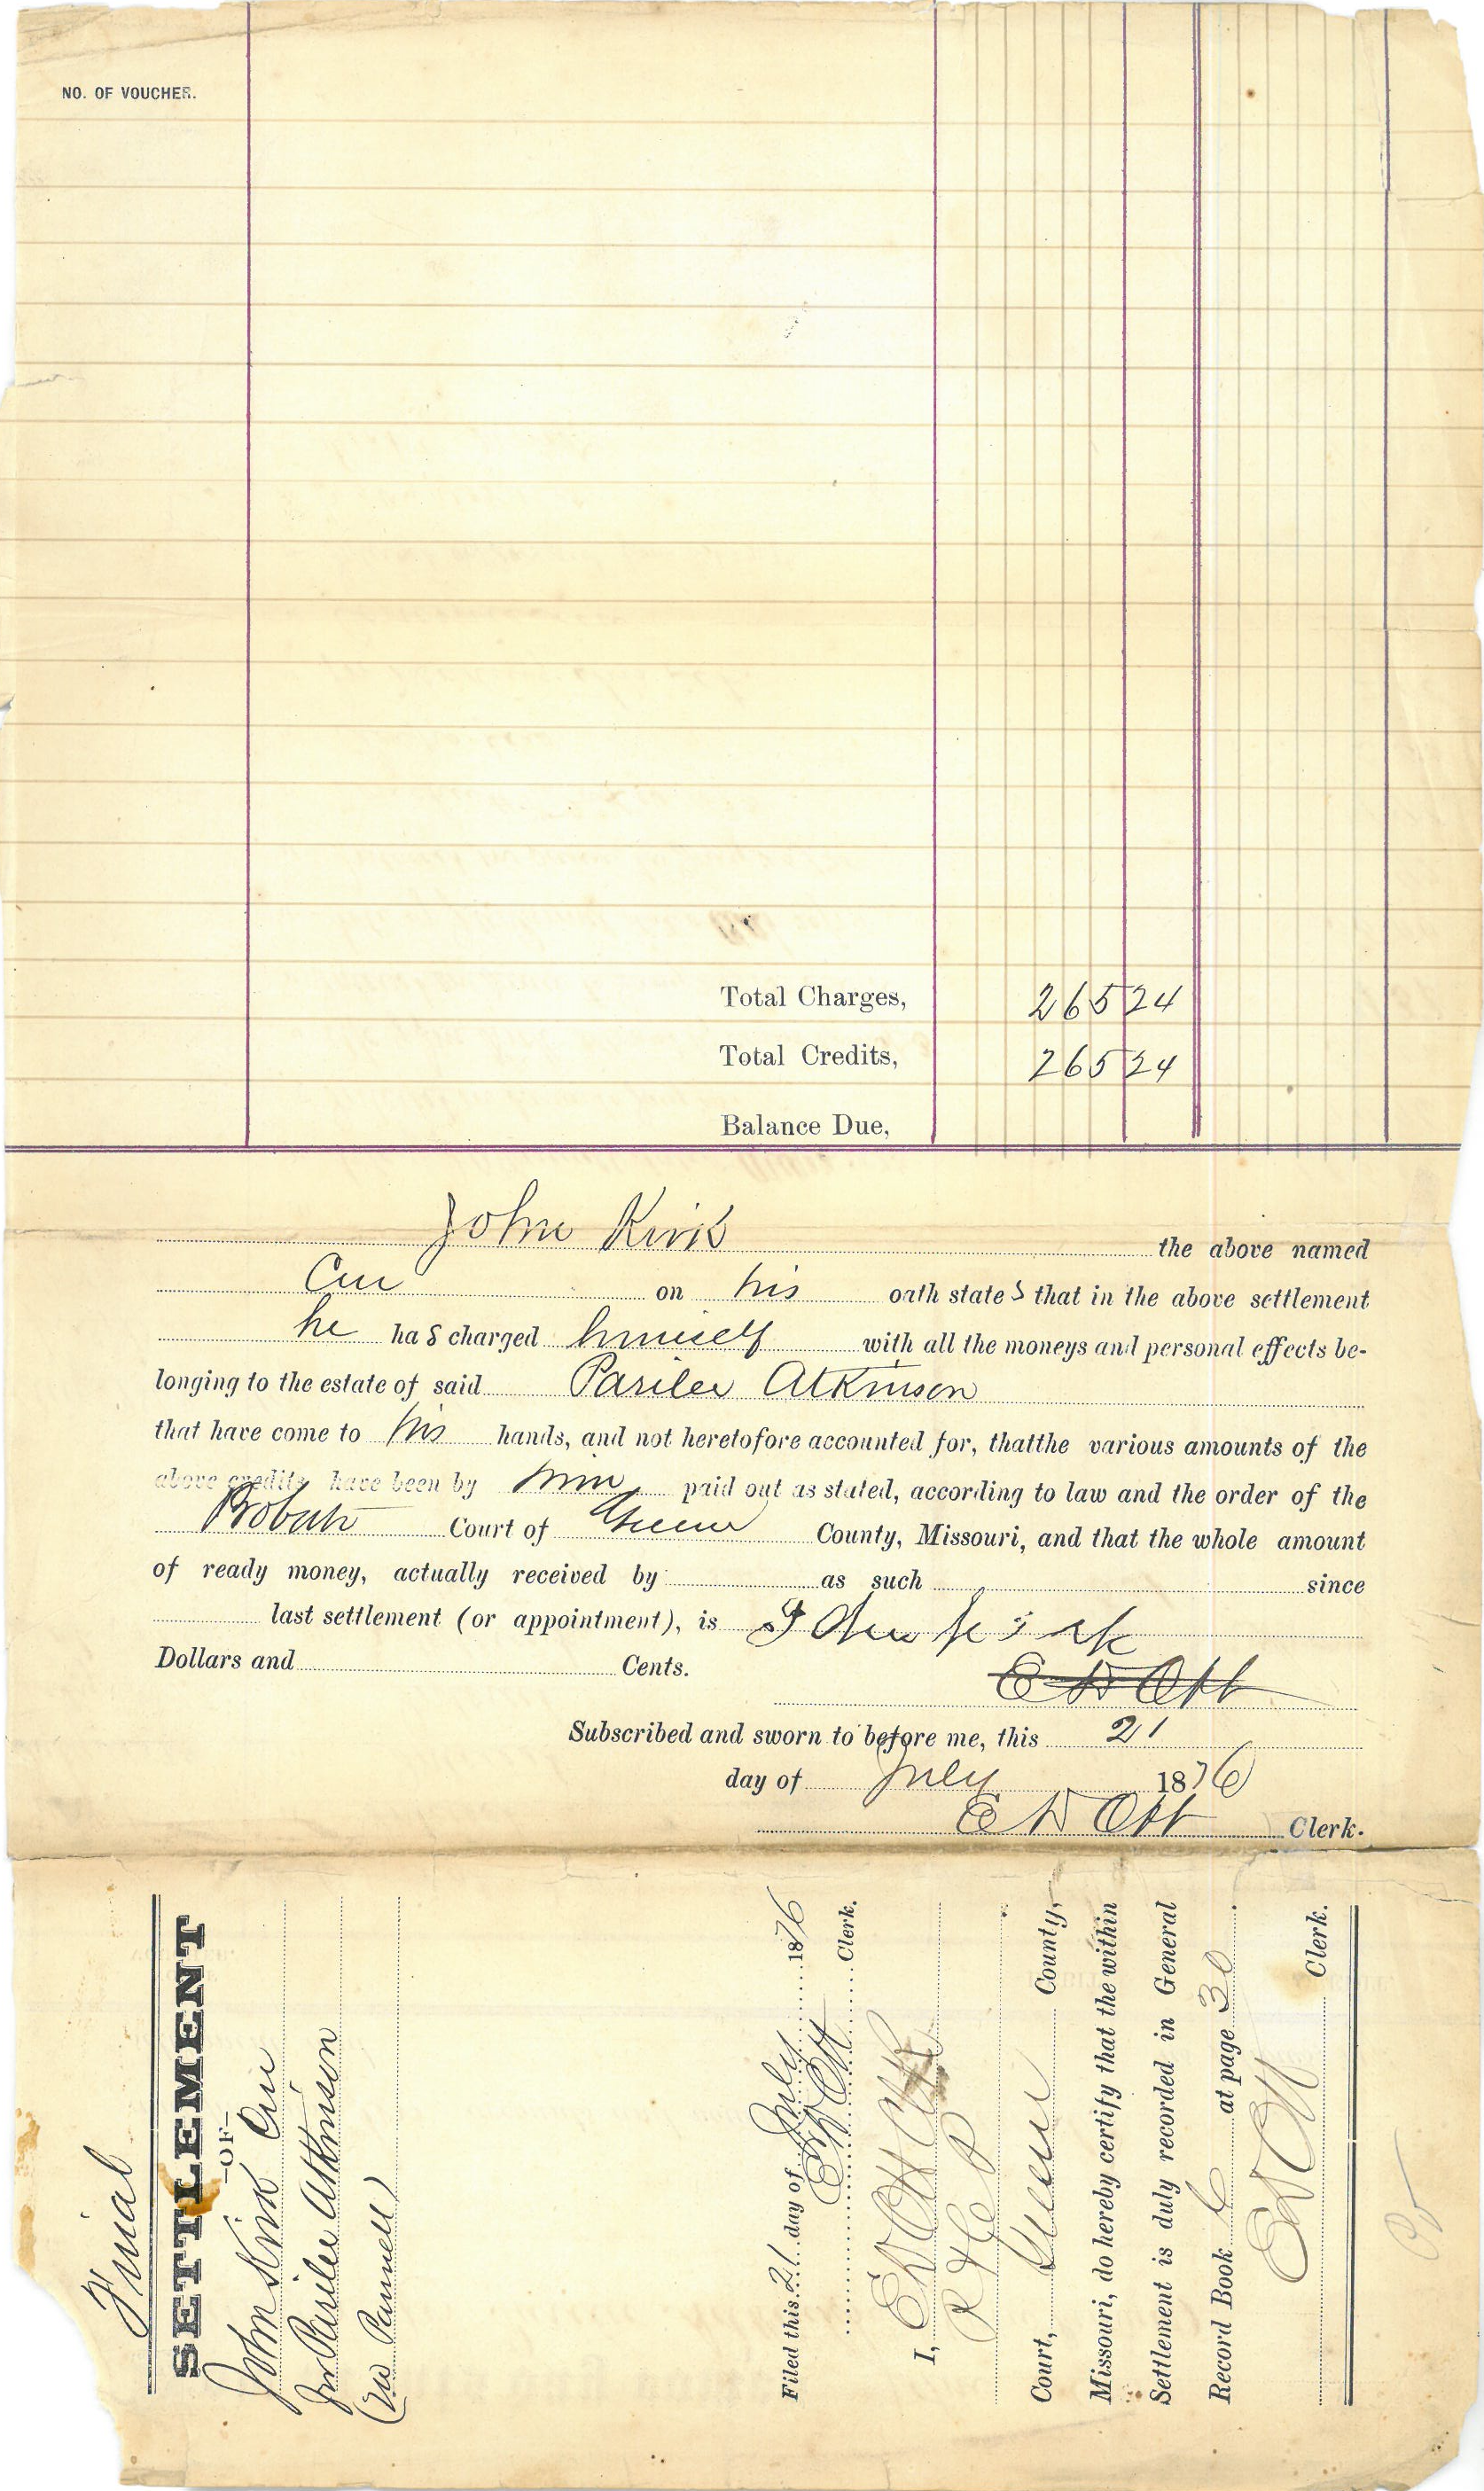 NO. OF VOUCHER.
Total Charges, 265 24
Total Credits, 265 24
Balance Due,
John Kirk the above named
Cur on his oath states that in the above settlement
he has charged himself with all the moneys and personal effects be-
longing to the estate of said Parilee Atkinson
that have come to his hands, and not heretofore accounted for, thatthe various amounts of the
above credits have been by him paid out as stated, according to law and the order of the
Probate Court of Greene County, Missouri, and that the whole amount
of ready money, actually received by as such since
last settlement (or appointment), is John Kirk
Dollars and Cents.
E D Ott
Subscribed and sworn to before me, this 21
day of July 1876
E D Ott Clerk.
Final
SETTLEMENT
—OF—
John Kirk Cur
for Parilee Atkinson
(now Pannell)
Filed this 21 day of July 1876
E D Ott Clerk.
I, E D Ott Clk
Court, Greene County,
Missouri, do hereby certify that the within
Settlement is duly recorded in General
Record Book C at page 30
E D Ott Clerk.